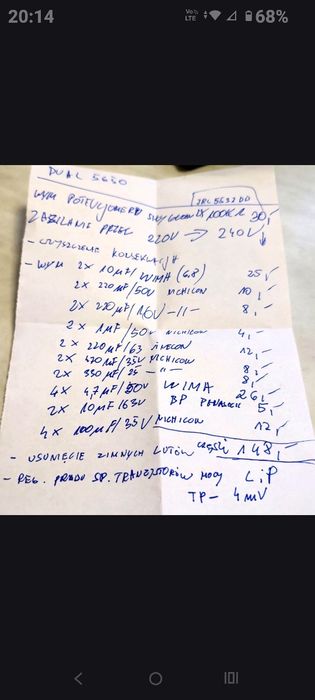 20:14
VoLTE 68%
DUAL 5630
WYM POTENCJOMETRU 2X 100K 30,-
2RL5632DD
ZASILANIE PRZEŁ 220V → 240V
- CZYSZCZENIE KONSERWACJA
- WYM 2x 10µF/ WIMA (6,8) 25,-
2x 220µF/50V NICHICON 10,-
2x 220µF/16V -11- 8,-
2x 1µF/50V NICHICON 4,-
2x 220µF/63 12,-
2x 470µF/35V NICHICON 8,-
2x 330µF/25 -"- 8,-
4x 4,7µF/50V WIMA 26,-
2x 10µF/63V BP 5,-
4x 100µF/35V NICHICON 12,-
- USUNIĘCIE ZIMNYCH LUTÓW CZĘŚCI 148,-
- REG. PRĄDU SP. TRANZYSTORÓW MOCY L i P
TP - 4mV